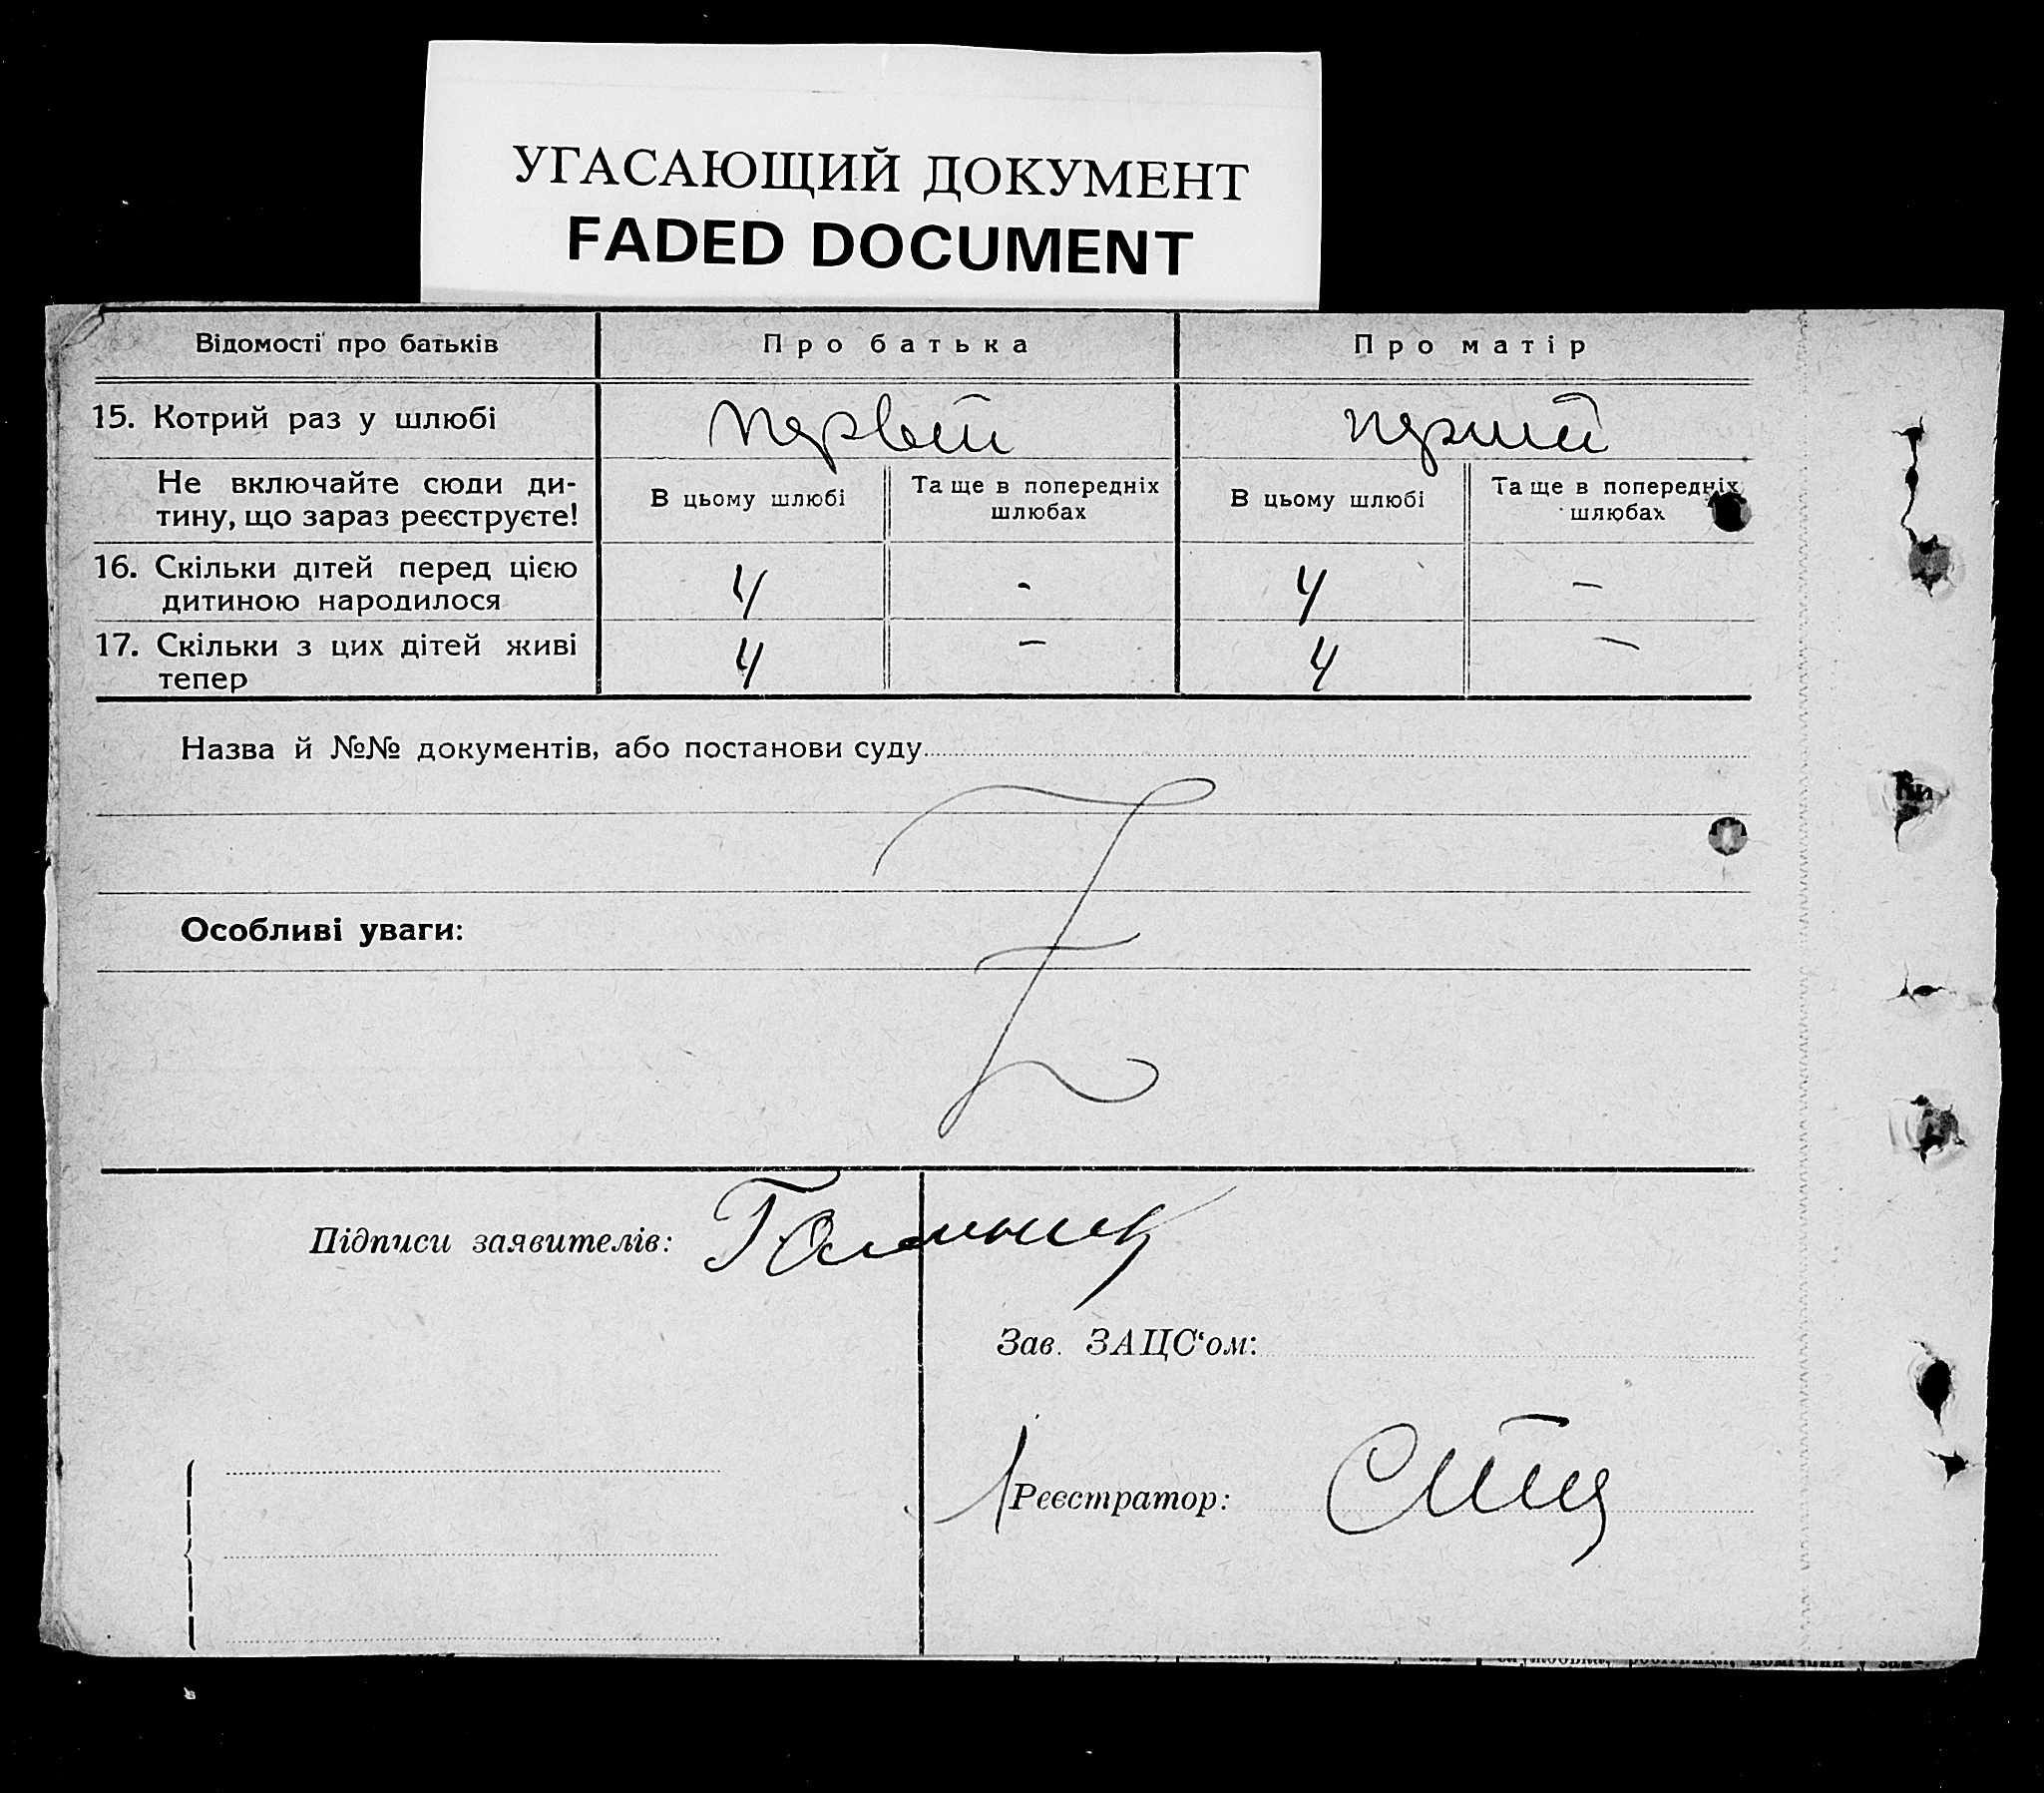 УГАСАЮЩИЙ ДОКУМЕНТ
FADED DOCUMENT
Відомості про батьків
Про батька
Про матір
15. Котрий раз у шлюбі
первий
перший
Не включайте сюди ди-
тину, що зараз реєструєте!
В цьому шлюбі
Та ще в попередніх
шлюбах
В цьому шлюбі
Та ще в попередніх
шлюбах
16. Скільки дітей перед цією
дитиною народилося
4
-
4
—
17. Скільки з цих дітей живі
тепер
4
—
4
—
Назва й №№ документів, або постанови суду
Особливі уваги:
Підписи заявителів:
Зав. ЗАЦС‘ом:
Реєстратор: